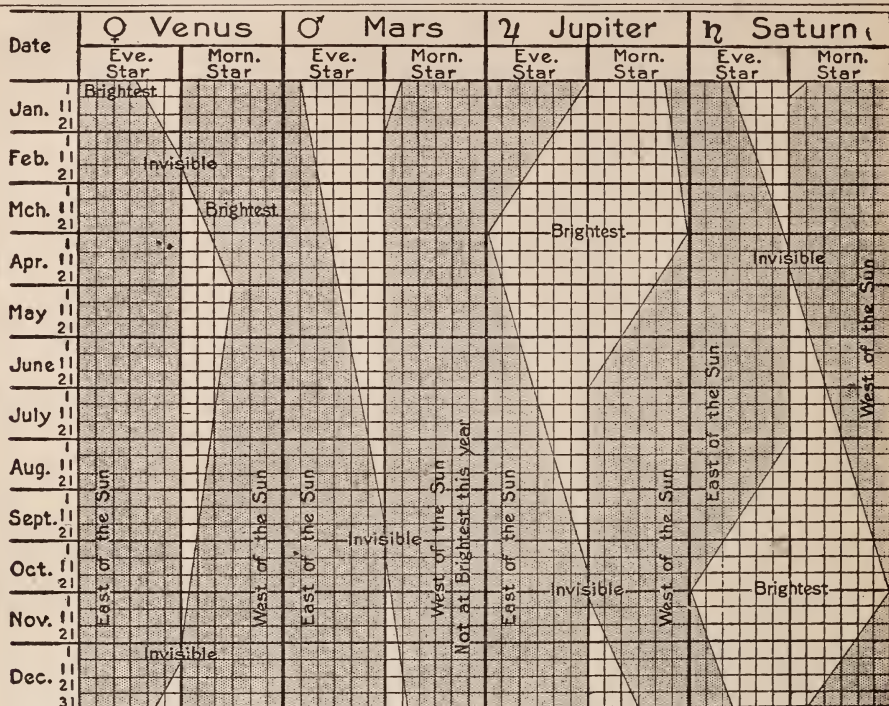 Date ♀ Venus ♂ Mars ♃ Jupiter ♄ Saturn
Eve. Star Morn. Star Eve. Star Morn. Star Eve. Star Morn. Star Eve. Star Morn. Star
Jan. 1 11 21
Feb. 1 11 21
Mch. 1 11 21
Apr. 1 11 21
May 1 11 21
June 1 11 21
July 1 11 21
Aug. 1 11 21
Sept. 1 11 21
Oct. 1 11 21
Nov. 1 11 21
Dec. 1 11 21 31
Brightest
Invisible
Brightest
East of the Sun
West of the Sun
Invisible
East of the Sun
Invisible
West of the Sun
Not at Brightest this year
Brightest
East of the Sun
Invisible
West of the Sun
Invisible
East of the Sun
West of the Sun
Brightest